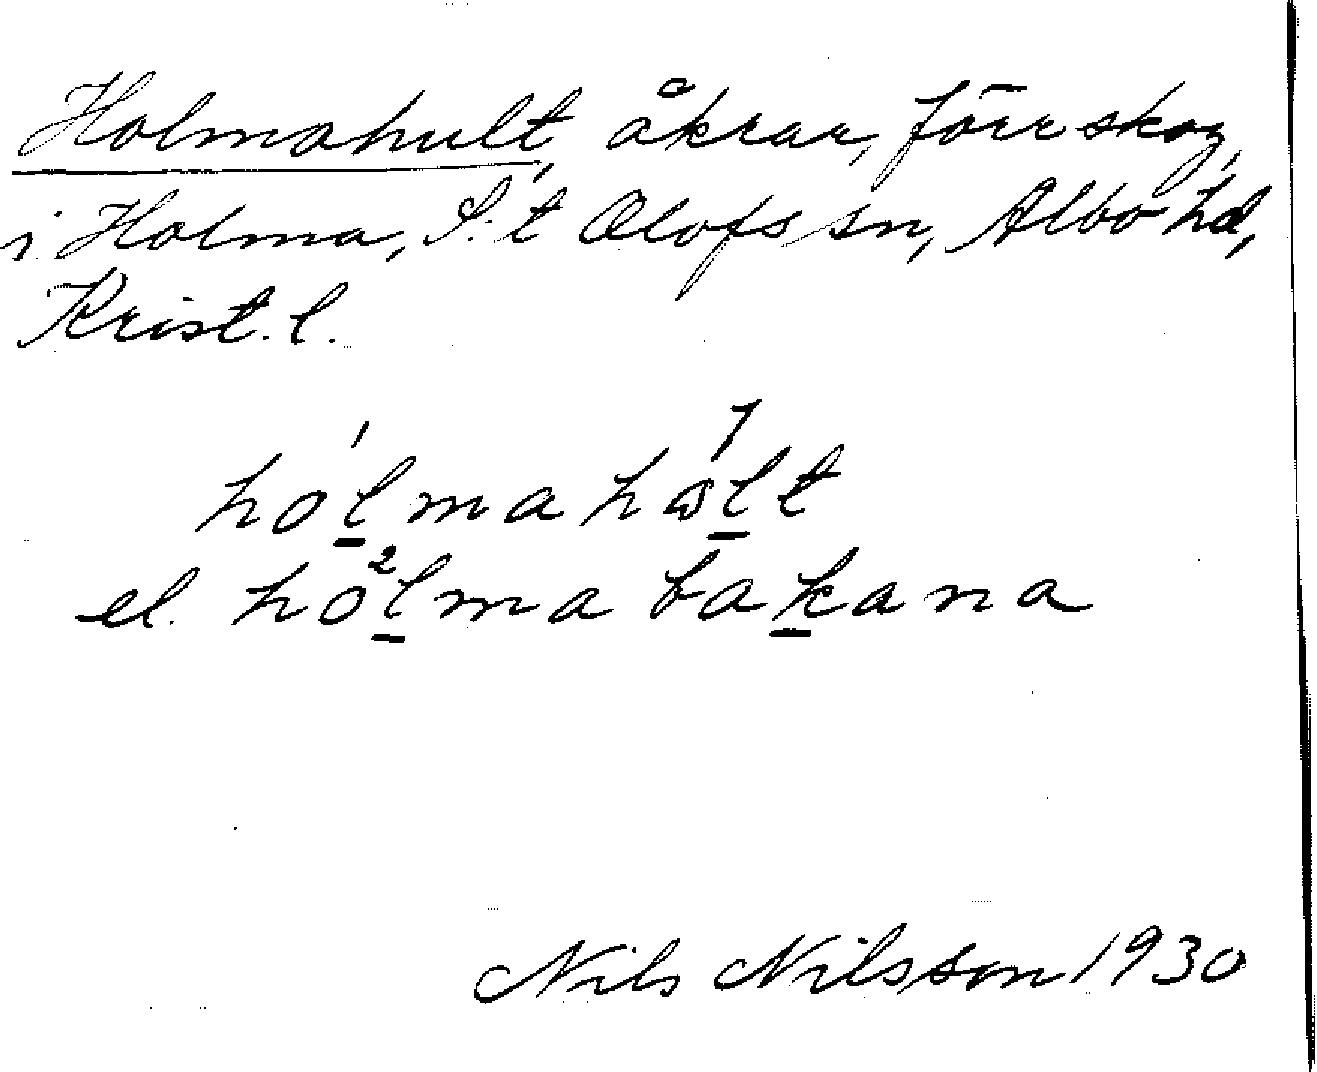 Holmahult, åkrar, förr skog,
i Holma, S:t Olofs sn, Albo hd,
Krist. l.
hol̲mahɷl̲t
el. hol̲ma bak̲ana
Nils Nilsson 1930